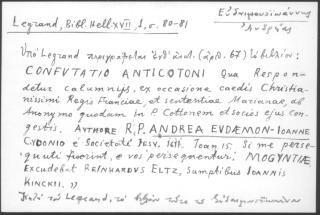 Legrand, Bibl. Hell XVII, 1, σ. 80-81
Εὐδαιμονοϊωάννης
Ἀνδρέας
Ὑπὸ Legrand περιγράφεται ἐνθ' ἀνωτ. (ἀρ. 67) τὸ βιβλίον:
CONFUTATIO ANTICOTONI Qua Respon-
detur calumnijs, ex occasione caedis Christia-
nissimi Regis Franciae, et sententiae Marianae, ab
Anonymo quodam in P. Cottonem et socios ejus con-
gestis. AUTHORE R.P. ANDREA EUDÆMON-IOANNE
CYDONIO è Societate Jesu. 1611. Ioan, 15. Si me perse-
quuti fuerint, et vos persequentur. MOGUNTIAE,
Excudebat REINHARDUS ELTZ, sumptibus IOANNIS
KINCKII. »
Κατὰ τὸν Legrand, τὸ